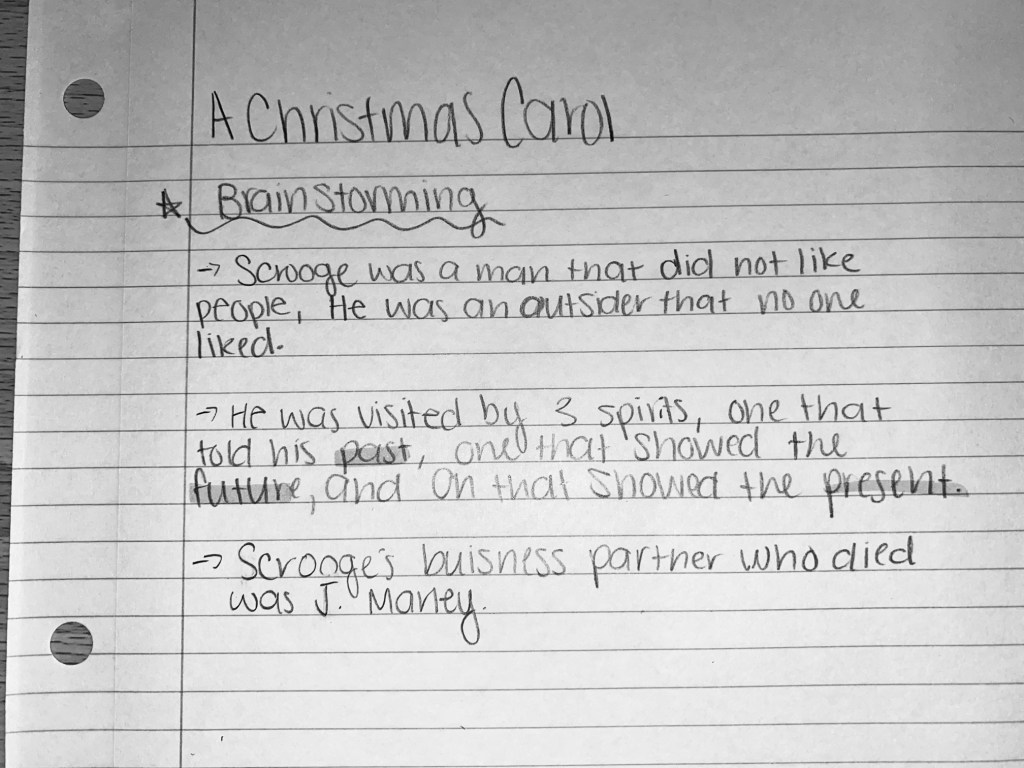 A Christmas Carol
☆ Brainstorming
→ Scrooge was a man that did not like
people, He was an outsider that no one
liked.
→ He was visited by 3 spirits, one that
told his past, one that showed the
future, and on that showed the present.
→ Scrooge's buisness partner who died
was J. Marley.